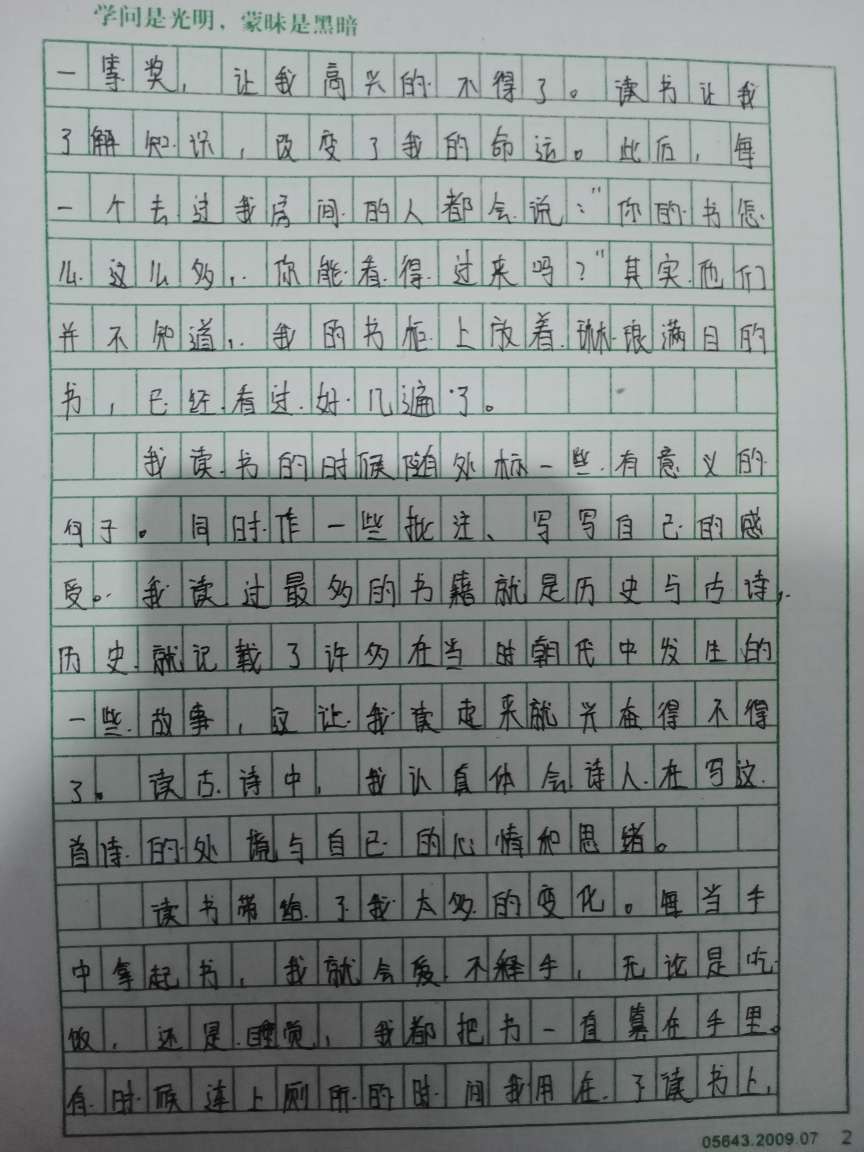 学问是光明，蒙昧是黑暗
一等奖，让我高兴的不得了。读书让我
了解知识，改变了我的命运。此后，每
一个去过我房间的人都会说：“你的书怎
么这么多，你能看得过来吗？”其实他们
并不知道，我的书柜上放着琳琅满目的
书，已经看过好几遍了。
我读书的时候随处标一些有意义的
句子。同时作一些批注、写写自己的感
受。我读过最多的书籍就是历史与古诗，
历史就记载了许多在当时朝代中发生的
一些故事，这让我读起来就兴奋得不得
了。读古诗中，我认真体会诗人在写这
首诗的处境与自己的心情和思绪。
读书带给了我太多的变化。每当手
中拿起书，我就会爱不释手，无论是吃
饭，还是睡觉，我都把书一直在手里。
有时候连上厕所的时间我用在了读书上，
05643.2009.07 2